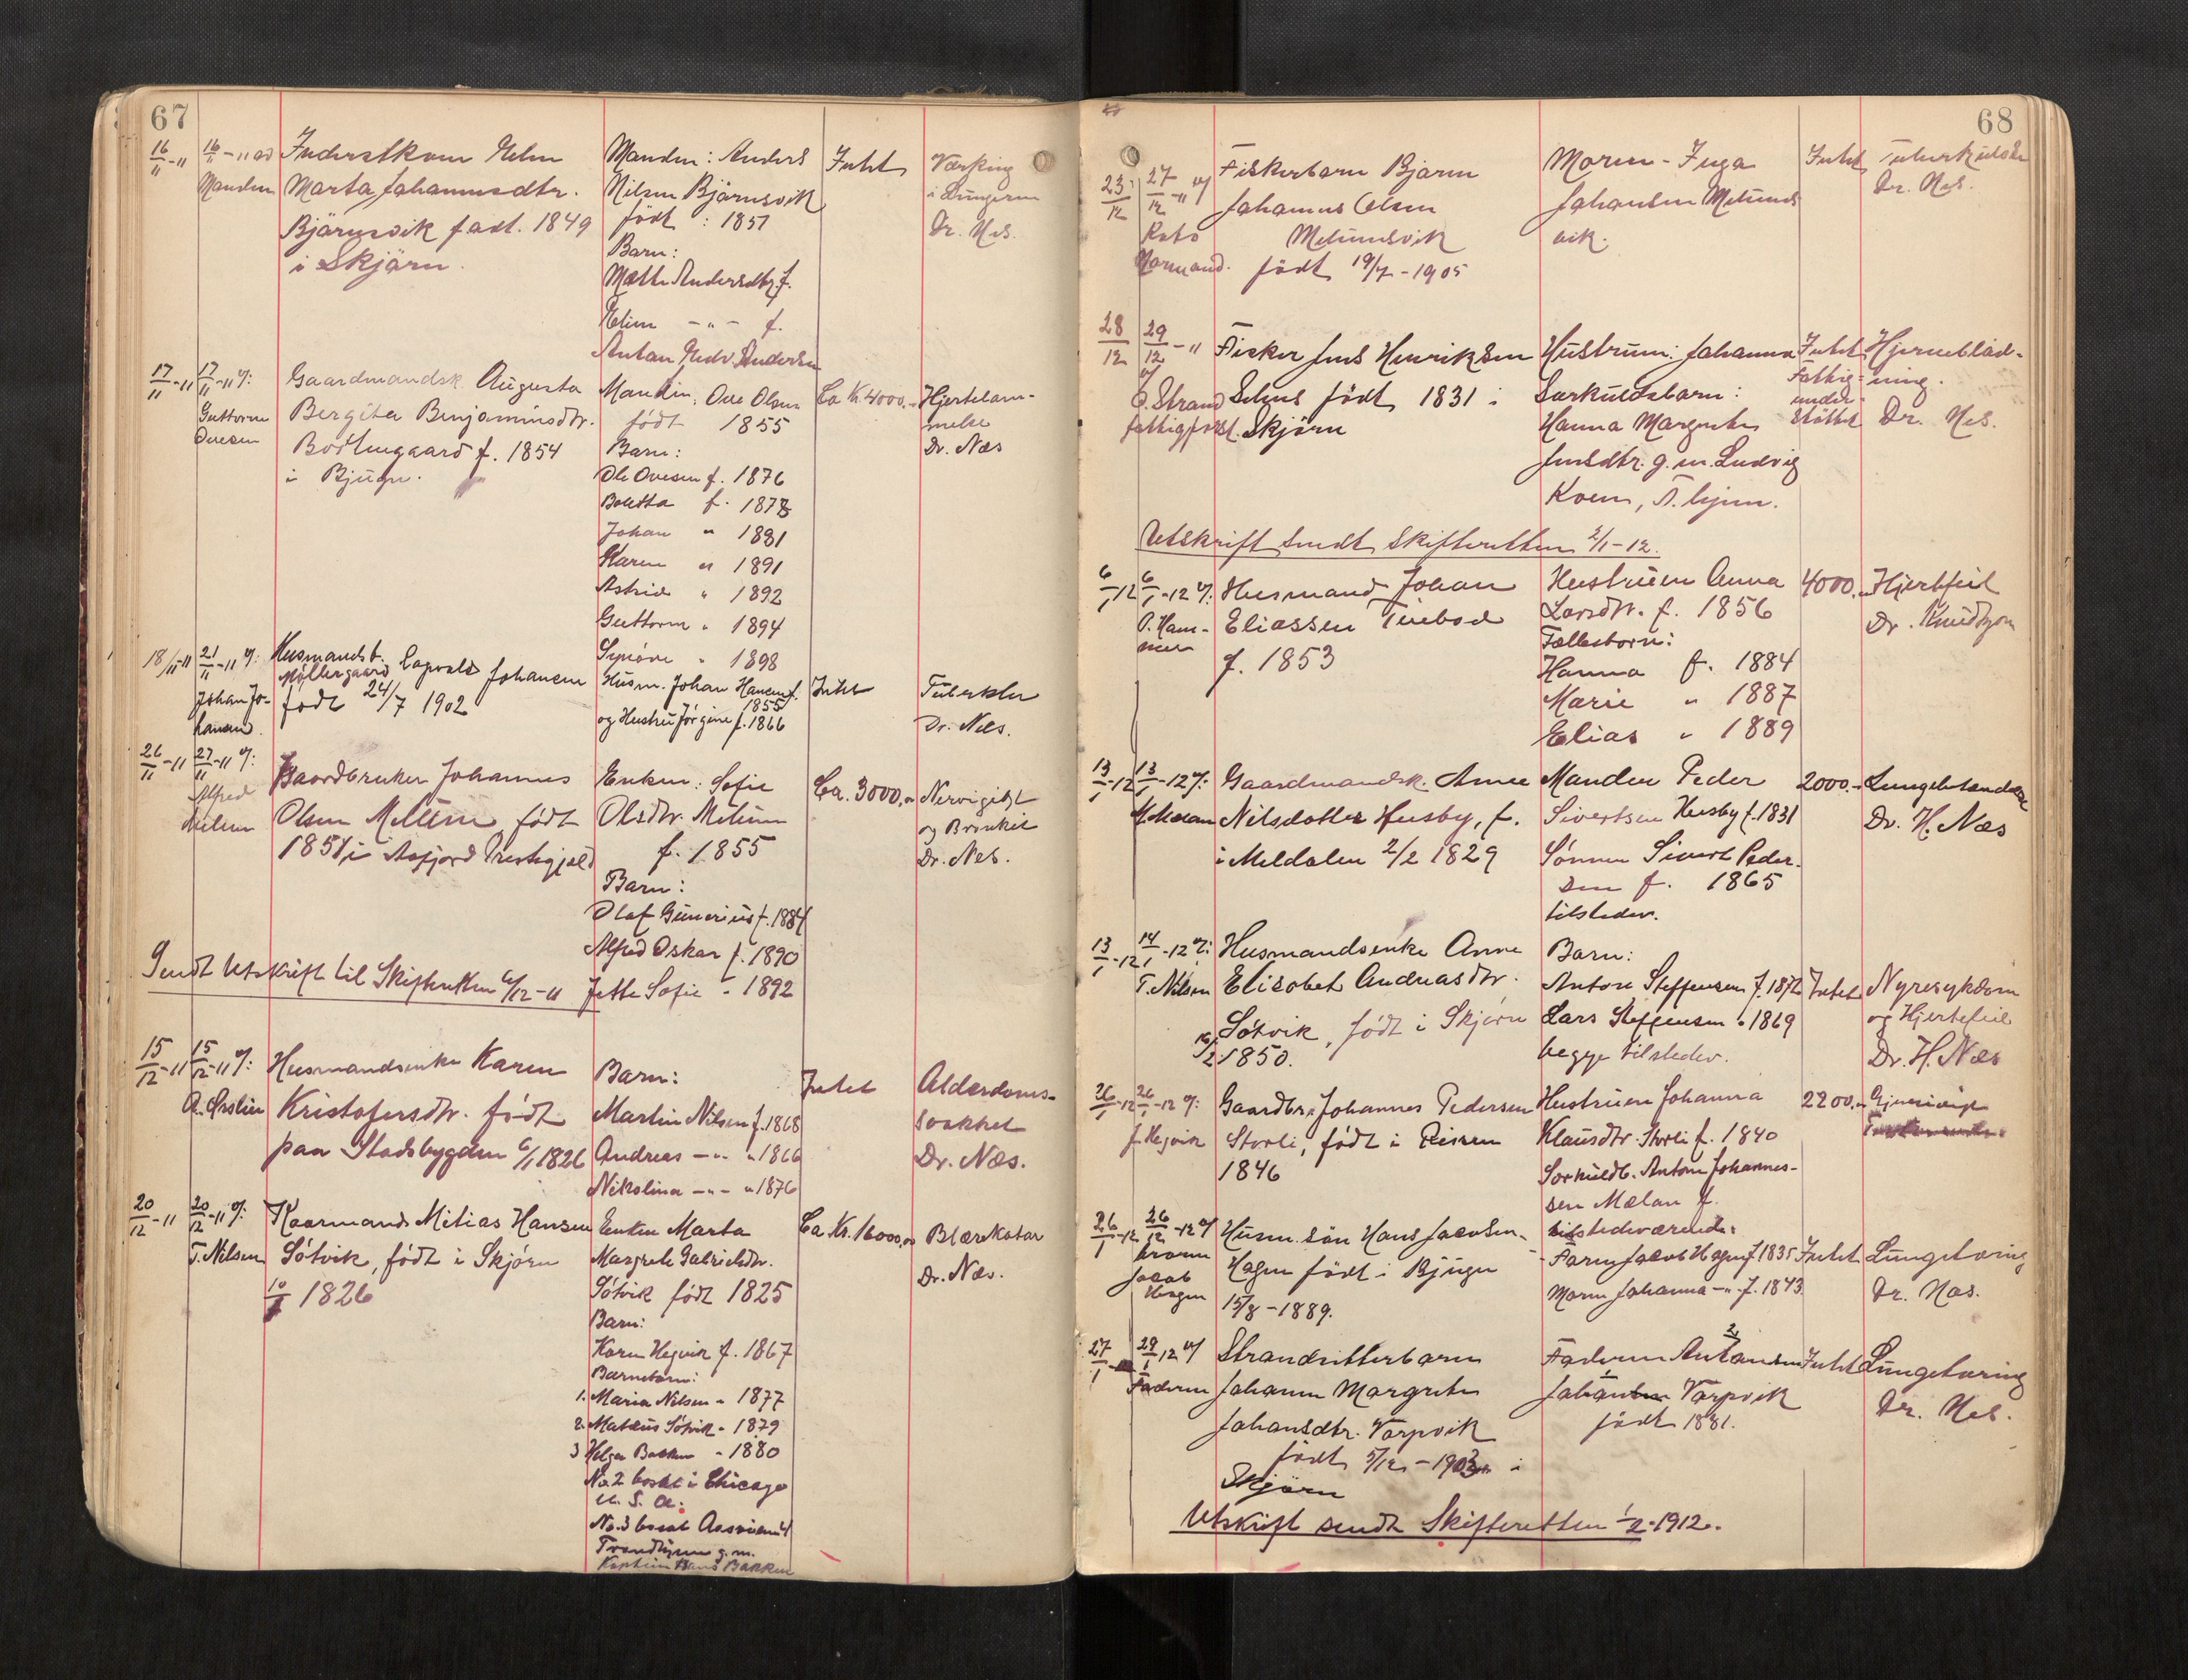 67
16/11-11 16/11-11 ad Manden
Inderstkone Elen
Marta Johannesdtr.
Bjørnsvik født. 1849
i Skjørn.
Manden: Anders
Nilsen Bjørnsvik
født : 1851
Barn:
Mette Andersdtr. f.
Elin - " - f.
Antan Edv. Andersen
Intet
Værking
i Lungerne
Dr. Næs.
17/11-11 17/11-11 v/:
Guttorm
Ovesen
Gaardmandsk. Augusta
Bergita Benjaminsdtr.
Botnengaard f. 1854
i Bjugn.
Manden: Ove Olsen
født 1855
Barn:
Ole Ovesen f. 1876
Boletta f. 1878
Johan " 1881
Karen " 1891
Astrid " 1892
Guttorm " 1894
Synøve " 1898
Ca K. 4000.-
Hjertelam-
melse
Dr. Næs
18/11-11 21/11-11 v/:
Johan Jo-
hansen.
Husmandsb.
Møllergaard Lagvald Johansen
født 24/7 1902
Husm. Johan Hansen f.
1855
og Hustru Jørgine f. 1866
Intet
Tuberkler
Dr. Næs.
26/11-11 27/11-11 v/:
Alfred
Melum
Gaardbruker Johannes
Olsen Melum født
1851 i Aafjord Prestegjeld
Enken: Sofie
Olsdtr. Melum
f. 1855
Barn:
Olaf Gunerius f. 1884
Alfred Oskar f. 1890
Jette Sofie " 1892
Ca. 3000,00
Nervigigt
og Bronkit
Dr. Næs.
Sendt Utskrift til Skifteretten 6/12-11
15/12-11 15/12-11 v/:
A. Ørslien
Husmandsenke Karen
Kristofersdtr. født
paa Stadsbygden 6/1 1826
Barn:
Martin Nilsen f. 1868
Andreas -"- " 1866
Nikolina -"- " 1876
Intet
Alderdoms-
svakhet
Dr. Næs.
20/12-11 20/12-11 v/:
T. Nilsen
Kaarmand Mitias Hansen
Søtvik, født i Skjørn
1826
Enken Marta
Margrete Gabrielsdtr.
Søtvik født 1825
Barn:
Karen Hegvik f. 1867
Barnebarn:
1. Maria Nilsen - 1877
2. Mateus Søtvik - 1879
3 Helga Bakken - 1880
No. 2 bosat i Chicago
U. S. A.
No. 3 bosat
Trondhjem g. m.
Kaptein Hans Bakken
Ca Kr. 16000,00
Blærekatar
Dr. Næs.
68
23/12 27/12-11 v/
Mormand.
Fiskerbarn Bjarne
Johannes Olsen
Melumsvik
født 19/7-1905
Moren - Inga
Johansen Melums
vik.
Intet
Tuberkulose
Dr. Næs.
28/12 29/12-11
v/
O. Strand
fattigforst.
Fisker Jens Henriksen
Selnes født 1831 i
Skjørn
Hustruen: Johanna
Særkuldsbarn:
Hanna Margrete
Jensdtr. g. m. Ludvig
Kvern, T.hjem.
Intet
Fattig-
under-
støttet
Hjerneblød-
ning.
Dr. Næs.
Utskrift sendt Skifteretten 2/1-12.
6/1-12 6/1-12 v/:
O. Ham-
mer
Husmand Johan
Eliassen Teiebod
f. 1853
Hustruen Anna
Larsdtr. f. 1856
Fællesbarn:
Hanna f. 1884
Marie " 1887
Elias " 1889
4000.-
Hjertefeil
Dr. Knudtzon
13/1-12 13/1-12 v/:
Gaardmandsk. Anne
Nilsdatter Husby, f.
i Meldalen 2/2 1829
Manden Peder
Sivertsen Husby f. 1831
Sønnen Sivert Peder-
sen f. 1865
tilstede.
2000.-
Lungebetændelse
Dr. H. Næs
13/1-12 14/1-12 v/:
T. Nilsen
Husmandsenke Anne
Elisabet Andreasdtr.
Søtvik, født i Skjørn
1850.
Barn:
Anton Steffensen f. 1872
Lars Steffensen " 1869
begge tilstede.
Intet
Nyresykdom
og Hjertefeil
Dr. H. Næs
26/1-12 26/1-12 v/:
J. Hegvik
Gaardbr. Johannes Pedersen
Storli, født i Rissen
1846
Hustruen Johanna
Klausdtr. Storli f. 1840
Særkuldb. Anton Johannes-
sen Mælan f.
tilstedeværende.
2200.-
26/1-12 26/1-12 v/
broren
Jacob
Hagen
Husm. søn Hans Jacobsen
Hagen født i Bjugn
15/8-1889.
Faren Jacob Hagen f. 1835
Moren Johanna -"- f. 1843.
Intet
Lungetæring
Dr. Næs.
27/1 29/1 12 v/
Faderen
Strandsitterbarn
Johanne Margrete
Johansdtr. Vorpvik
født 5/12-1903 i
Skjørn
Faderen Antansen
Johan Vorpvik
født 1881.
Intet
Lungetæring
Dr. Næs.
Utskrift sendt Skifteretten 1/2-1912.